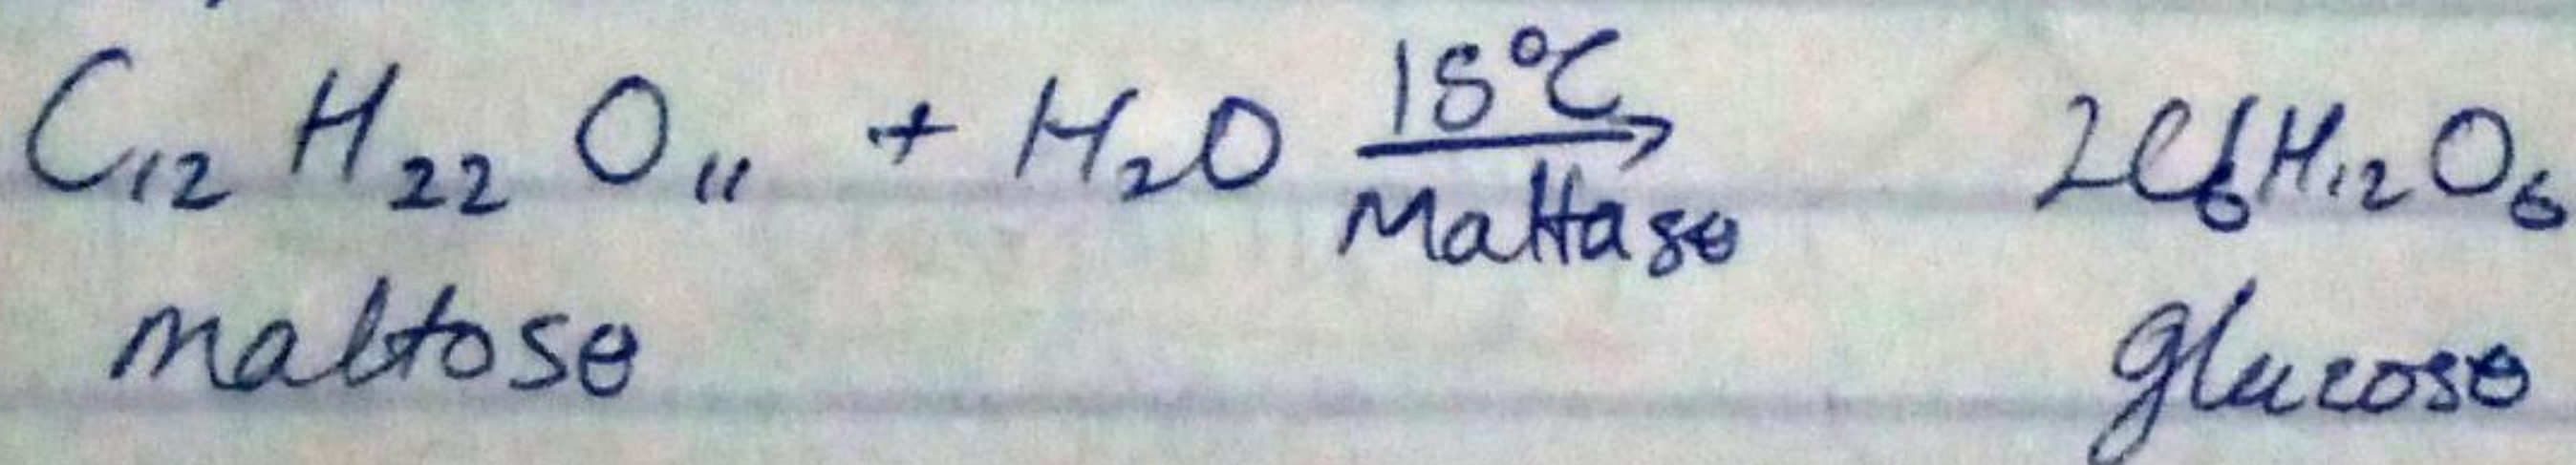 C₁₂ H₂₂ O₁₁ + H₂O 15°C→ Maltase 2C₆H₁₂O₆
maltose glucose